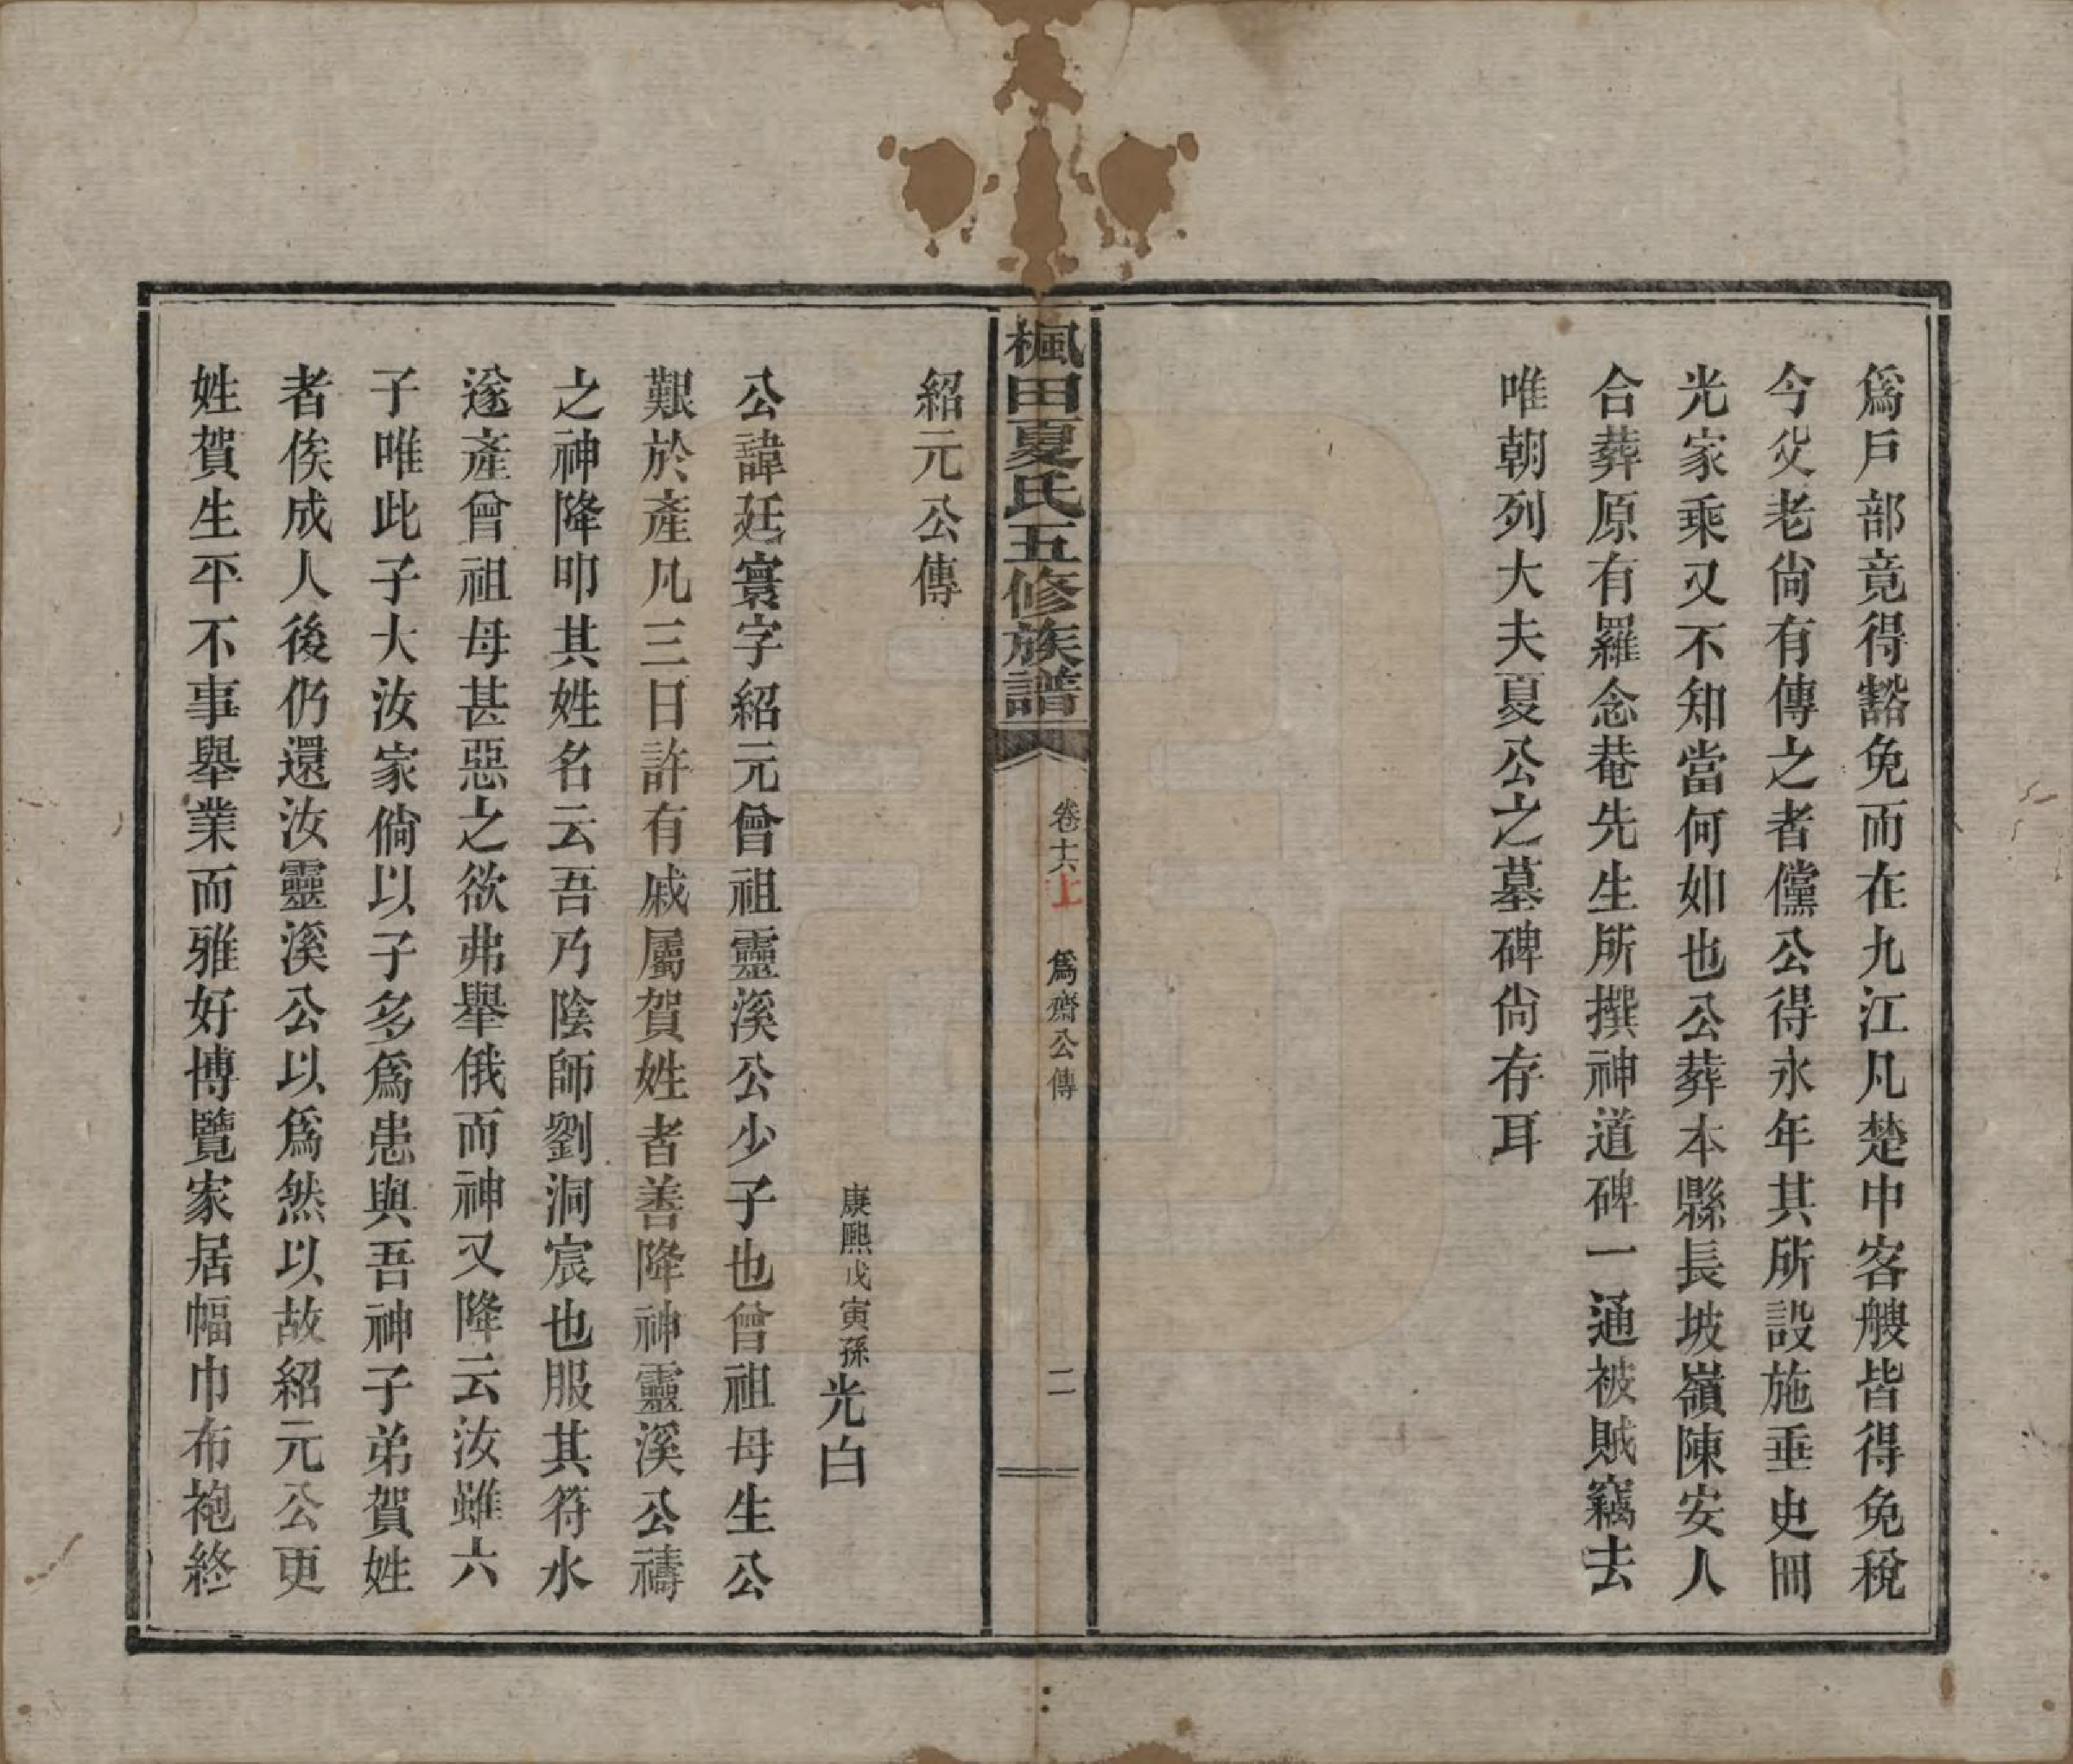 爲戶部竟得豁免而在九江凡楚中客艘皆得免稅
今父老尙有傳之者儻公得永年其所設施垂史冊
光家乘又不知當何如也公葬本縣長坡嶺陳安人
合葬原有羅念菴先生所撰神道碑一通被賊竊去
唯朝列大夫夏公之墓碑尙存耳
楓田夏氏五修族譜
卷十六上
爲齋公傳
二
紹元公傳
康熙戊寅孫光白
公諱廷寰字紹元曾祖靈溪公少子也曾祖母生公
艱於產凡三日許有戚屬賀姓者善降神靈溪公禱
之神降叩其姓名云吾乃陰師劉洞宸也服其符水
遂產曾祖母甚惡之欲弗舉俄而神又降云汝雖六
子唯此子大汝家倘以子多爲患與吾神子弟賀姓
者俟成人後仍還汝靈溪公以爲然以故紹元公更
姓賀生平不事舉業而雅好博覽家居幅巾布袍終